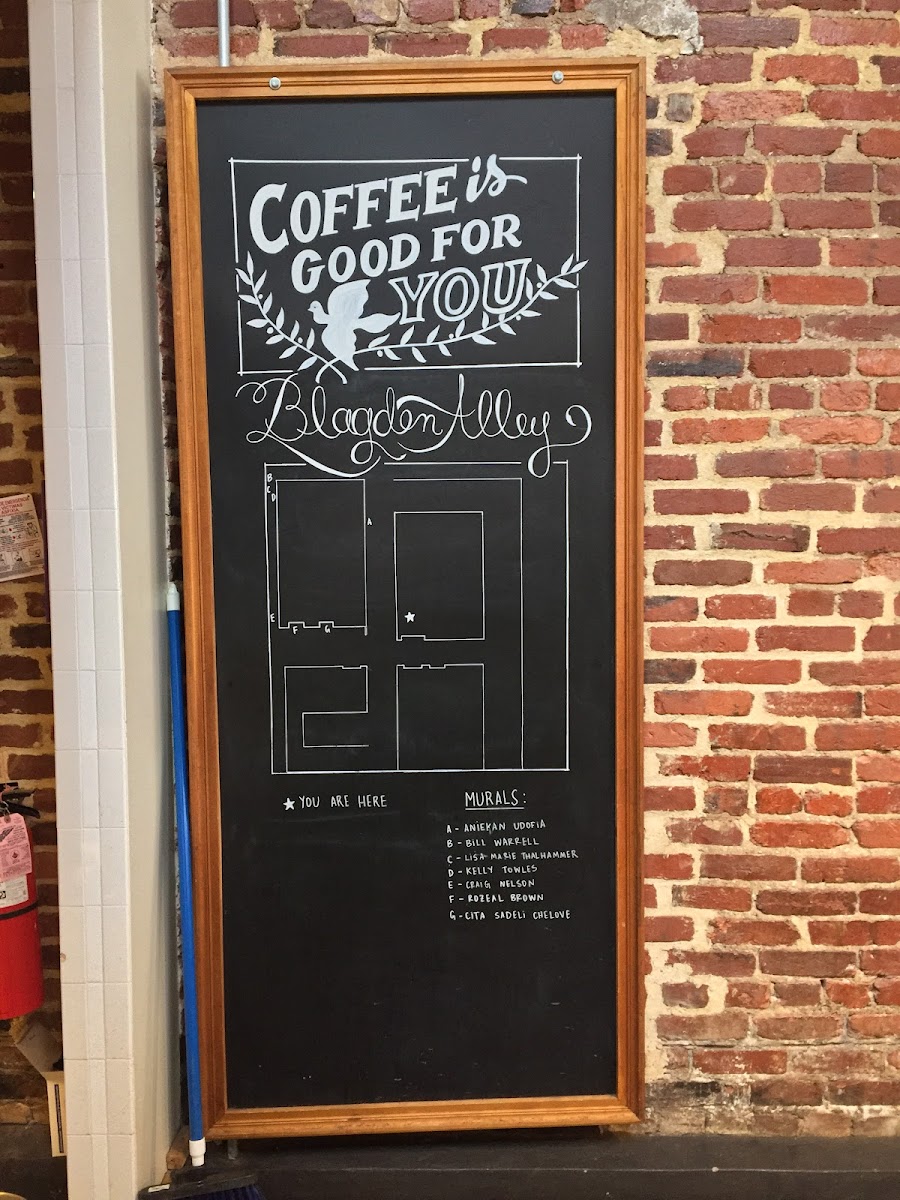 COFFEE is
GOOD FOR
YOU
Blagden Alley
B
C
D
A
E
F
G
YOU ARE HERE
MURALS:
A - ANIEKAN UDOFIA
B - BILL WARRELL
C - LISA-MARIE THALHAMMER
D - KELLY TOWLES
E - CRAIG NELSON
F - ROZEAL BROWN
G - CITA SADELI CHELOVE